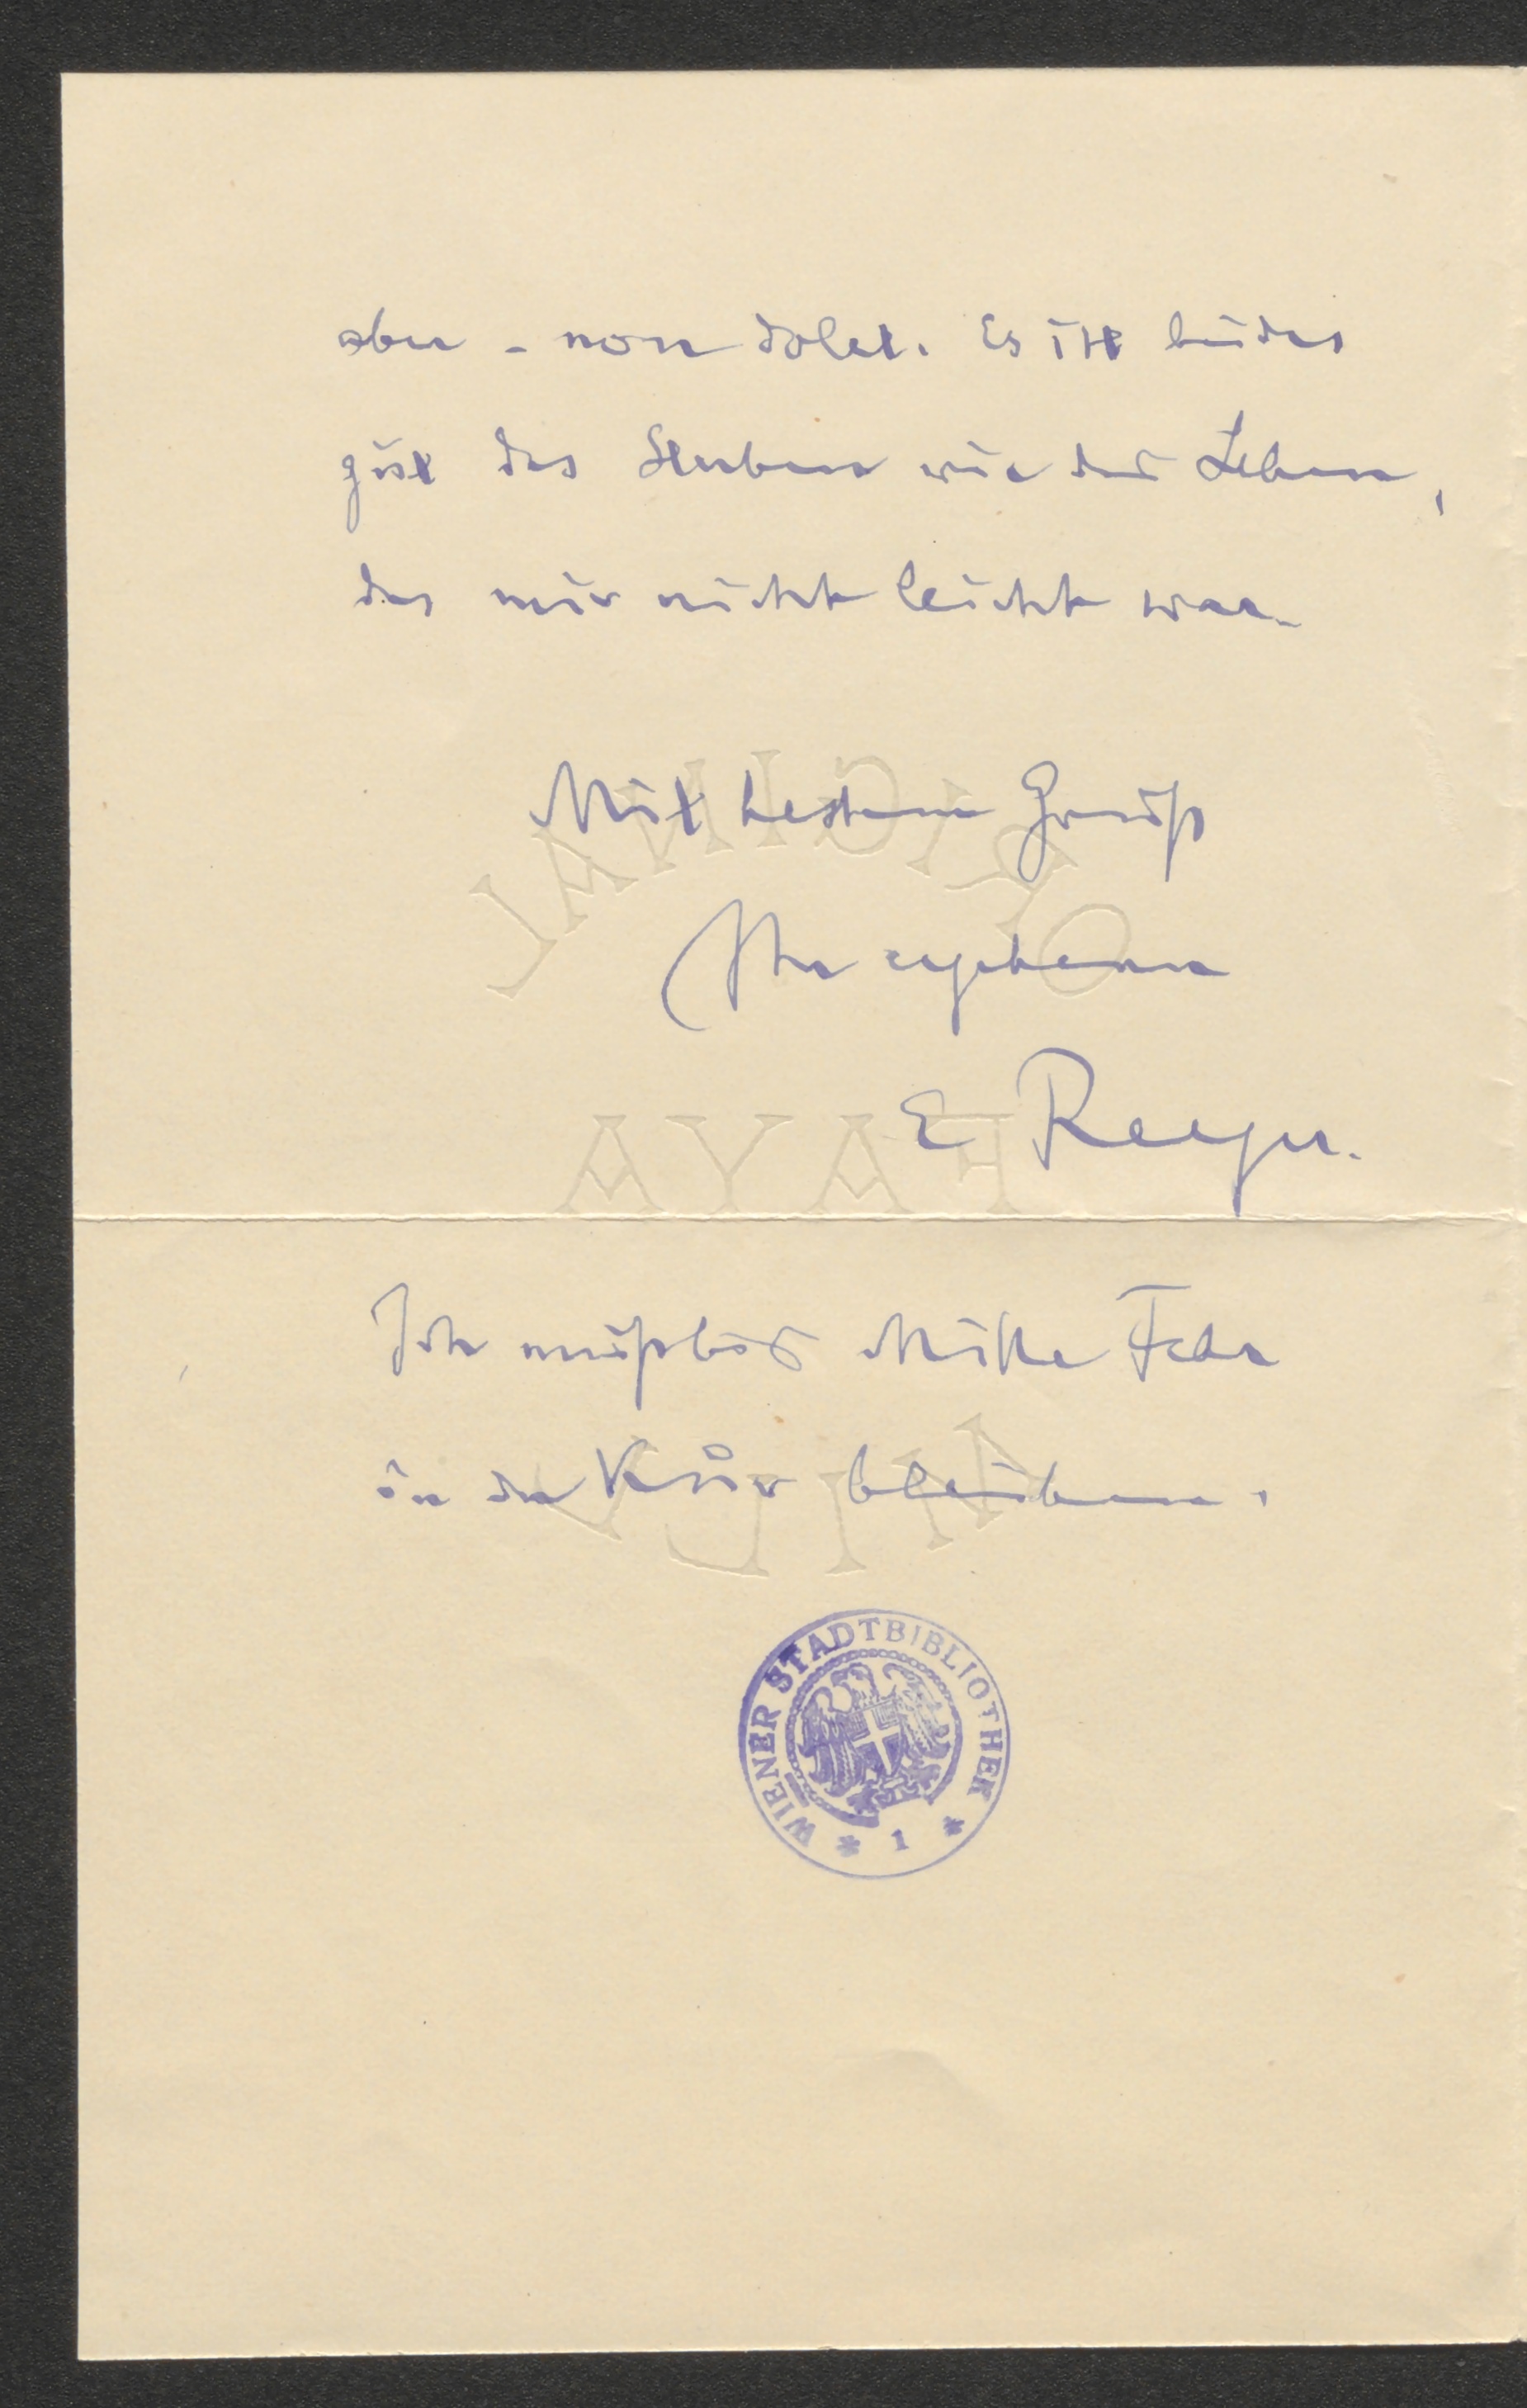 aber - non dolet. Es ist beides
gut das Sterben wie das Leben,
das mir nicht leicht war.
Mit bestem Gruß
Ihr ergebener
E Reeger.
Ich muß bis Mitte Febr
in der Kur bleiben.
WIENER STADTBIBLIOTHEK
* 1 *
ORIGINAL
FAYA